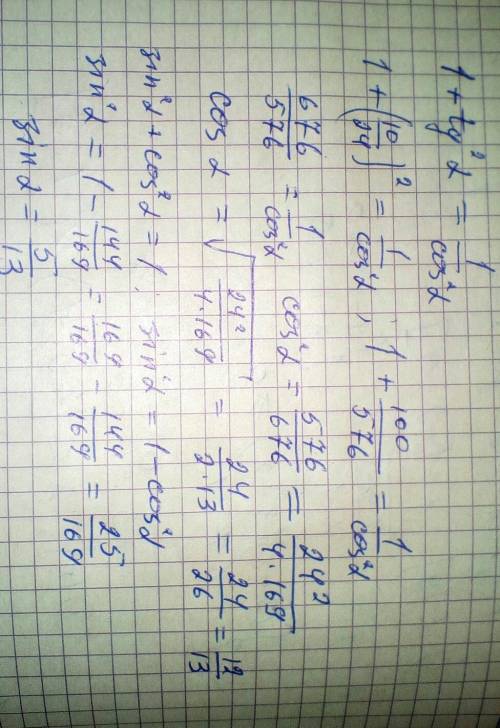 1 + tg²α = 1/cos²α
1 + (10/24)² = 1/cos²α ; 1 + 100/576 = 1/cos²α
676/576 = 1/cos²α cos²α = 576/676 = 24²/4·169
cos α = √(24²/4·169) = 24/2·13 = 24/26 = 12/13
sin²α + cos²α = 1; sin²α = 1 - cos²α
sin²α = 1 - 144/169 = 169/169 - 144/169 = 25/169
sin α = 5/13